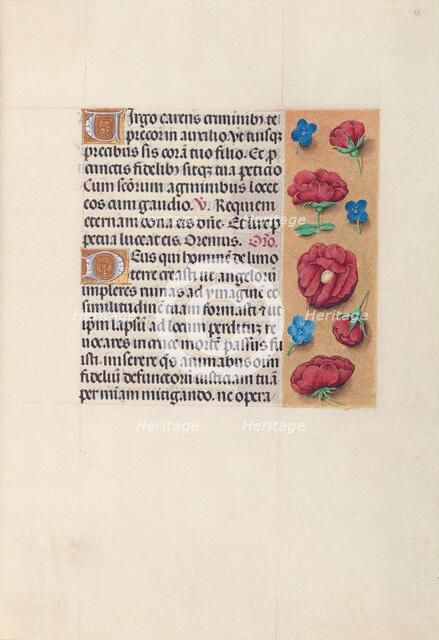 Virgo carens criminibus te
precor in auxilio. Ut tuisque
precibus sis coram tuo filio. Et pro
cunctis fidelibus sitque tua peticio
Cum sctorum agminibus locet
eos cum gaudio. V. Requiem
eternam dona eis dne. Et lux per
petua luceat eis. Oremus. Oro.
Deus qui hominem de limo
terre creasti ut angelorum
impleres ruinas ad ymagine et
similitudine tuam formasti et ut
ipm lapsum ad locum perditum re
uocares in cruce mortem passus fu
isti. miserere qs animabus omium
fidelium defunctorum iusticiam tuam
per miam mitigando. ne opera
Heritage
Heritage
Heritage
Heritage